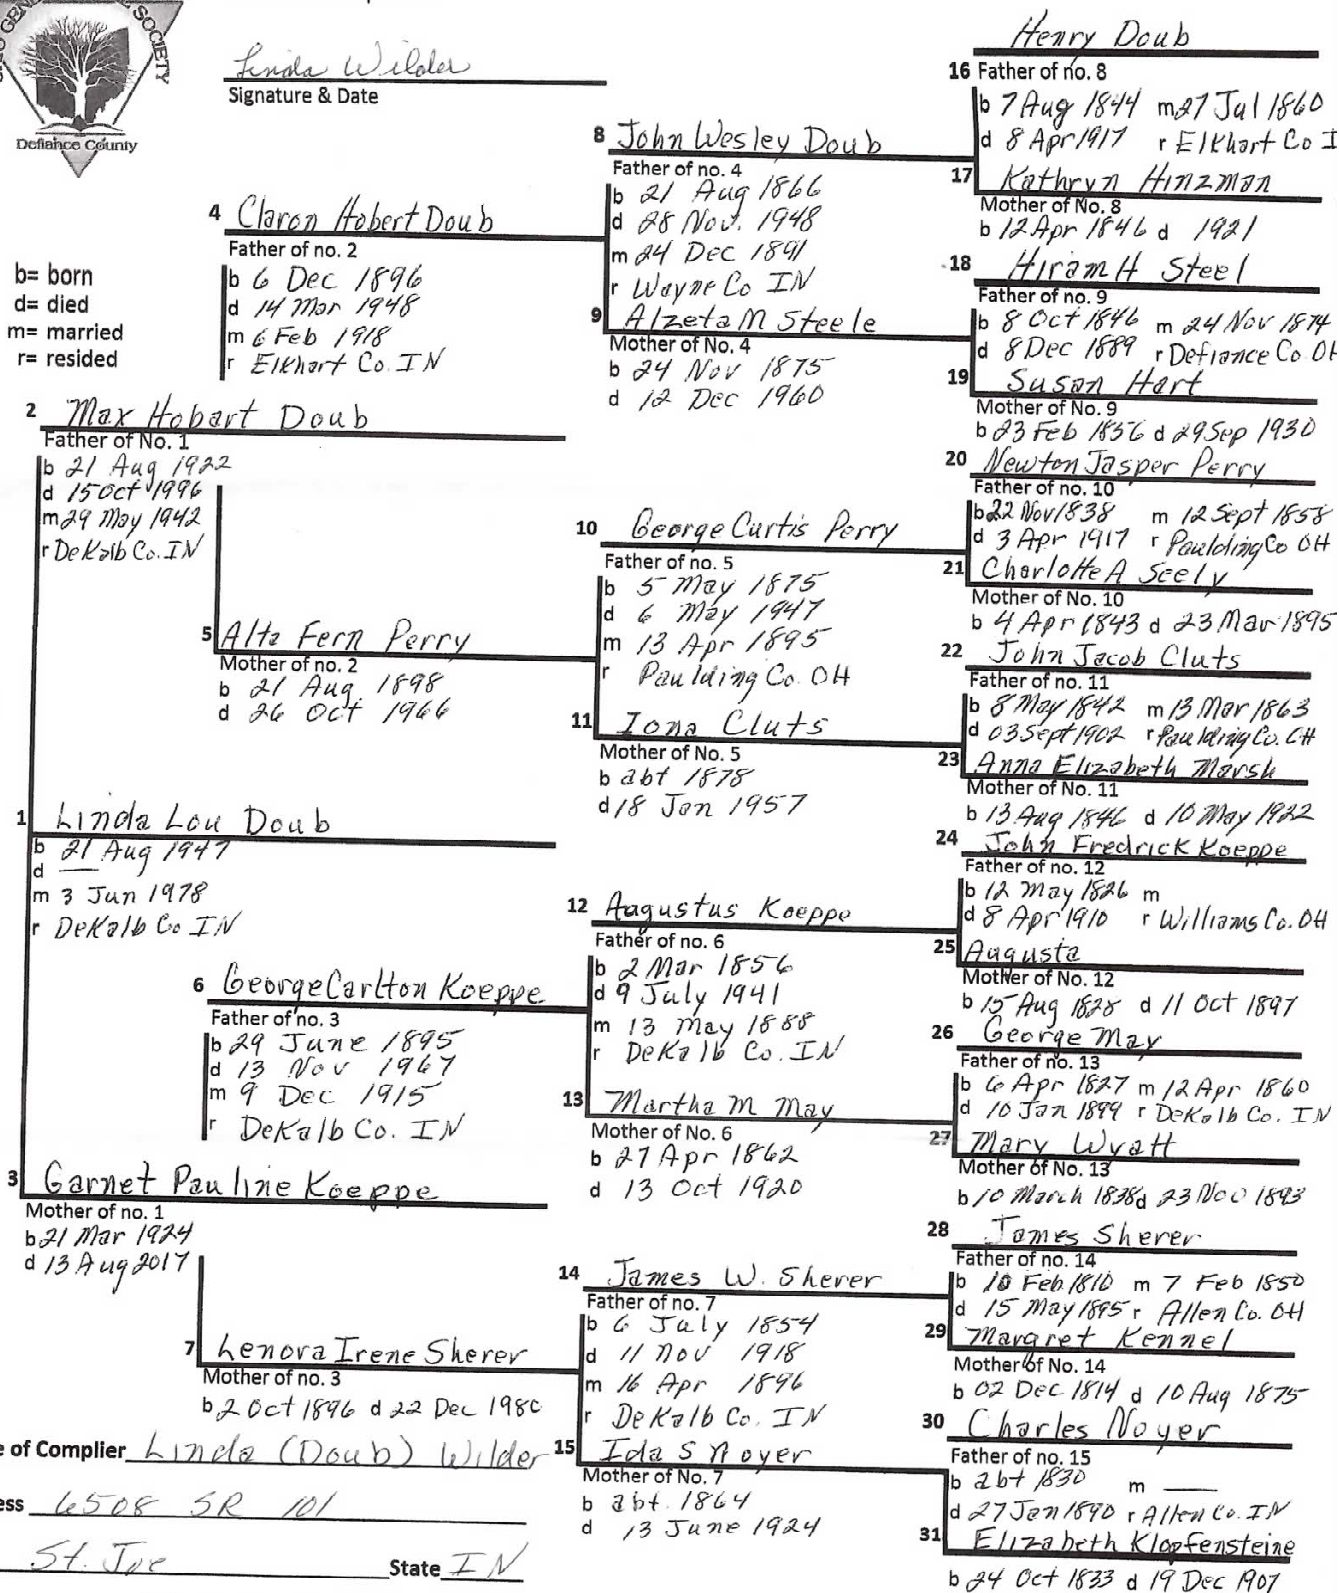 SOCIETY
Defiance County
Linda Wilder
Signature & Date
b= born
d= died
m= married
r= resided
1 Linda Lou Doub
b 21 Aug 1947
d —
m 3 Jun 1978
r DeKalb Co IN
2 Max Hobart Doub
Father of No. 1
b 21 Aug 1922
d 15 Oct 1996
m 29 May 1942
r DeKalb Co. IN
3 Garnet Pauline Koeppe
Mother of no. 1
b 21 Mar 1924
d 13 Aug 2017
4 Claron Hobert Doub
Father of no. 2
b 6 Dec 1896
d 14 Mar 1948
m 6 Feb 1918
r Elkhart Co. IN
5 Alta Fern Perry
Mother of no. 2
b 21 Aug 1898
d 26 Oct 1966
6 George Carlton Koeppe
Father of no. 3
b 29 June 1895
d 13 Nov 1967
m 9 Dec 1915
r DeKalb Co. IN
7 Lenora Irene Sherer
Mother of no. 3
b 2 Oct 1896 d 22 Dec 1980
8 John Wesley Doub
Father of no. 4
b 21 Aug 1866
d 28 Nov. 1948
m 24 Dec 1891
r Wayne Co IN
9 Alzeta M Steele
Mother of No. 4
b 24 Nov 1875
d 12 Dec 1960
10 George Curtis Perry
Father of no. 5
b 5 May 1875
d 6 May 1947
m 13 Apr 1895
r Paulding Co. OH
11 Iona Cluts
Mother of No. 5
b abt 1878
d 18 Jan 1957
12 Augustus Koeppe
Father of no. 6
b 2 Mar 1856
d 9 July 1941
m 13 May 1888
r DeKalb Co. IN
13 Martha M May
Mother of No. 6
b 27 Apr 1862
d 13 Oct 1920
14 James W. Sherer
Father of no. 7
b 6 July 1854
d 11 Nov 1918
m 16 Apr 1896
r DeKalb Co. IN
15 Ida S Noyer
Mother of No. 7
b abt. 1864
d 13 June 1924
Henry Doub
16 Father of no. 8
b 7 Aug 1844 m 27 Jul 1860
d 8 Apr 1917 r Elkhart Co I
17 Kathryn Hinzman
Mother of No. 8
b 12 Apr 1846 d 1921
18 Hiram H Steel
Father of no. 9
b 8 Oct 1846 m 24 Nov 1874
d 8 Dec 1889 r Defiance Co. OH
19 Susan Hart
Mother of No. 9
b 23 Feb 1856 d 29 Sep 1930
20 Newton Jasper Perry
Father of no. 10
b 22 Nov 1838 m 12 Sept 1858
d 3 Apr 1917 r Paulding Co OH
21 Charlotte A Seely
Mother of No. 10
b 4 Apr 1843 d 23 Mar 1895
22 John Jacob Cluts
Father of no. 11
b 8 May 1842 m 13 Mar 1863
d 03 Sept 1902 r Paulding Co. OH
23 Anna Elizabeth Marsh
Mother of No. 11
b 13 Aug 1846 d 10 May 1922
24 John Fredrick Koeppe
Father of no. 12
b 12 May 1826 m
d 8 Apr 1910 r Williams Co. OH
25 Augusta
Mother of No. 12
b 15 Aug 1828 d 11 Oct 1897
26 George May
Father of no. 13
b 6 Apr 1827 m 12 Apr 1860
d 10 Jan 1899 r DeKalb Co. IN
27 Mary Wyatt
Mother of No. 13
b 10 March 1838 d 23 Nov 1893
28 James Sherer
Father of no. 14
b 10 Feb 1810 m 7 Feb 1850
d 15 May 1895 r Allen Co. OH
29 Margret Kennel
Mother of No. 14
b 02 Dec 1814 d 10 Aug 1875
30 Charles Noyer
Father of no. 15
b abt 1830 m —
d 27 Jan 1890 r Allen Co. IN
31 Elizabeth Klopfensteine
b 24 Oct 1833 d 19 Dec 1907
e of Complier Linda (Doub) Wilder
ess 6508 SR 101
St. Joe State IN